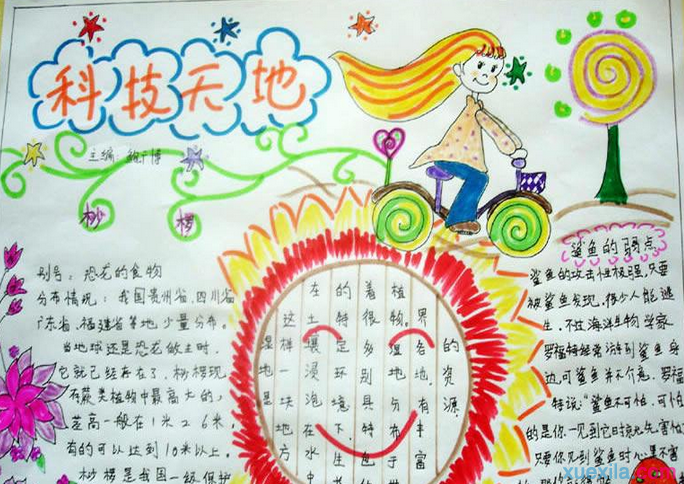 科技天地
主编：
桫椤
别号：恐龙的食物
分布情况：我国贵州省、四川省
广东省、福建省等地少量分布。
当地球还是恐龙做主时，
它就已经存在了，桫椤现
存蕨类植物中最高大的，
茎高一般在1米26米，
有的可以达到10米以上。
桫椤是我国一级保护
湿地是
这样一块地方
在土壤浸泡在水中
的特定环境下生存
着很多别具特色的
植物湿地分布于世
界各地有丰富
的资源
鲨鱼的弱点
鲨鱼的攻击性极强，只要
被鲨鱼发现，很少人能逃
生，不过海洋生物学家
罗福特经常游到鲨鱼身
边，可鲨鱼并不介意。罗福
特说：“鲨鱼不可怕，可怕
的是你一见到它时就先害怕
只要你见到鲨鱼时心里不害
xuexila.com